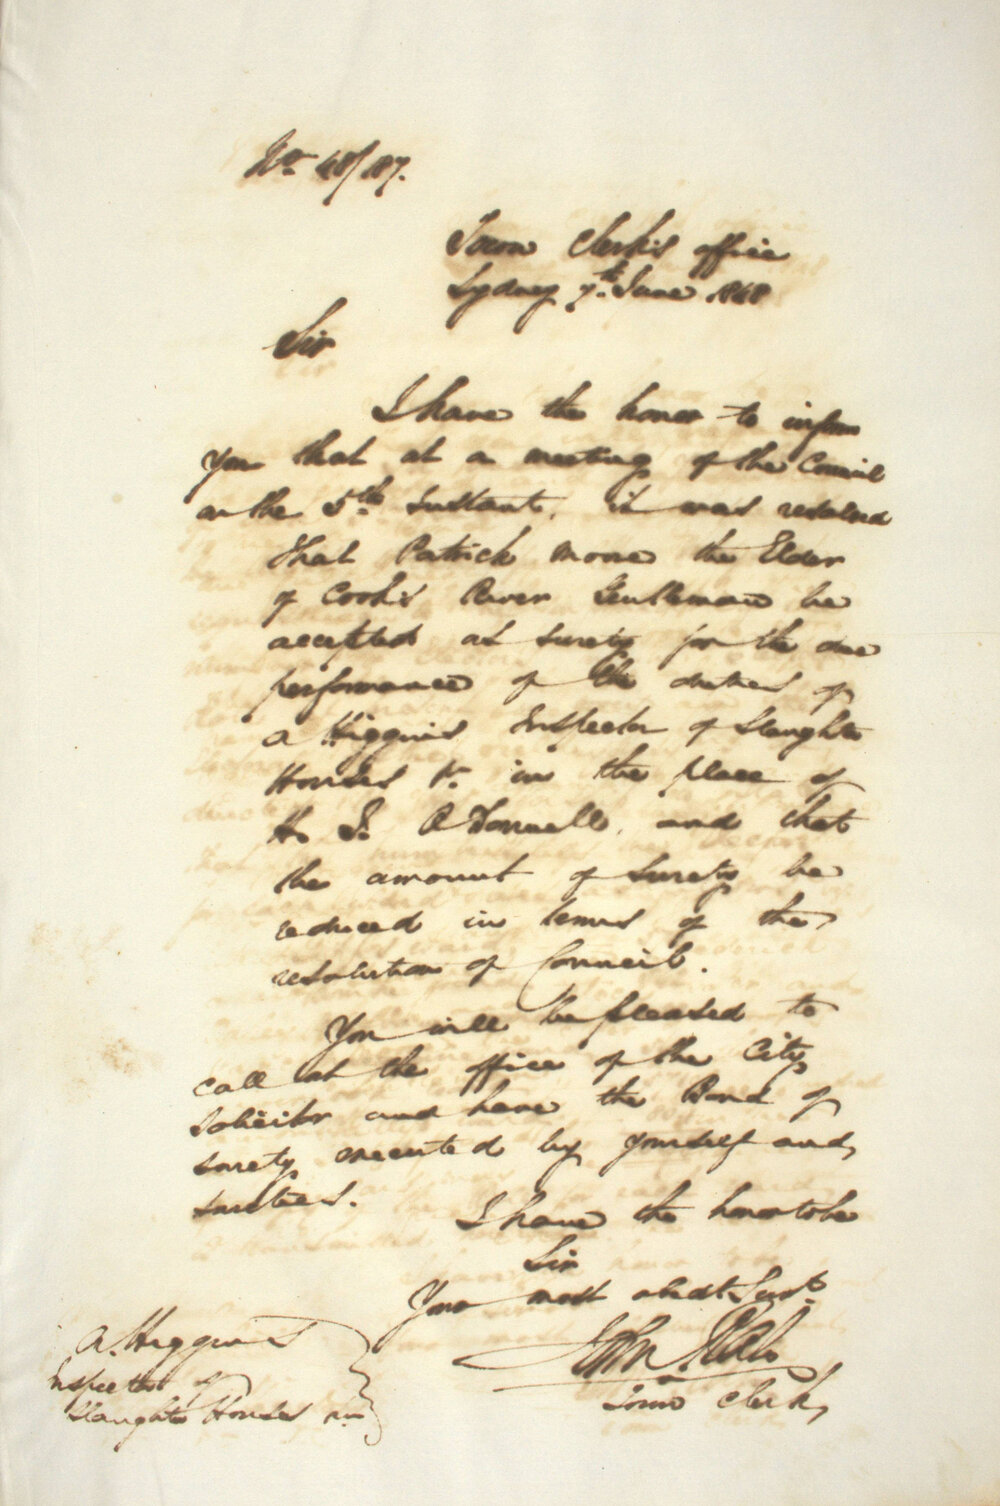 No. 48/187.
Town Clerk's office
Sydney 7th June 1848
Sir
I have the honor to inform
you that at a meeting of the Council
on the 5th Instant, it was resolved
That Patrick Moore the Elder
of Cook's River Gentleman be
accepted as surety for the due
performance of the duties of
A Higgins Inspector of Slaughter
Houses &c. in the place of
H. O'Donnell, and that
the amount of Surety be
reduced in terms of the
resolution of Council.
You will be pleased to
call at the office of the City
Solicitor and have the Bond of
surety executed by yourself and
sureties.
I have the honor to be
Sir
Your most obedt Servt
John Rae
Town Clerk
A. Higgins
Inspector of
Slaughter Houses &c